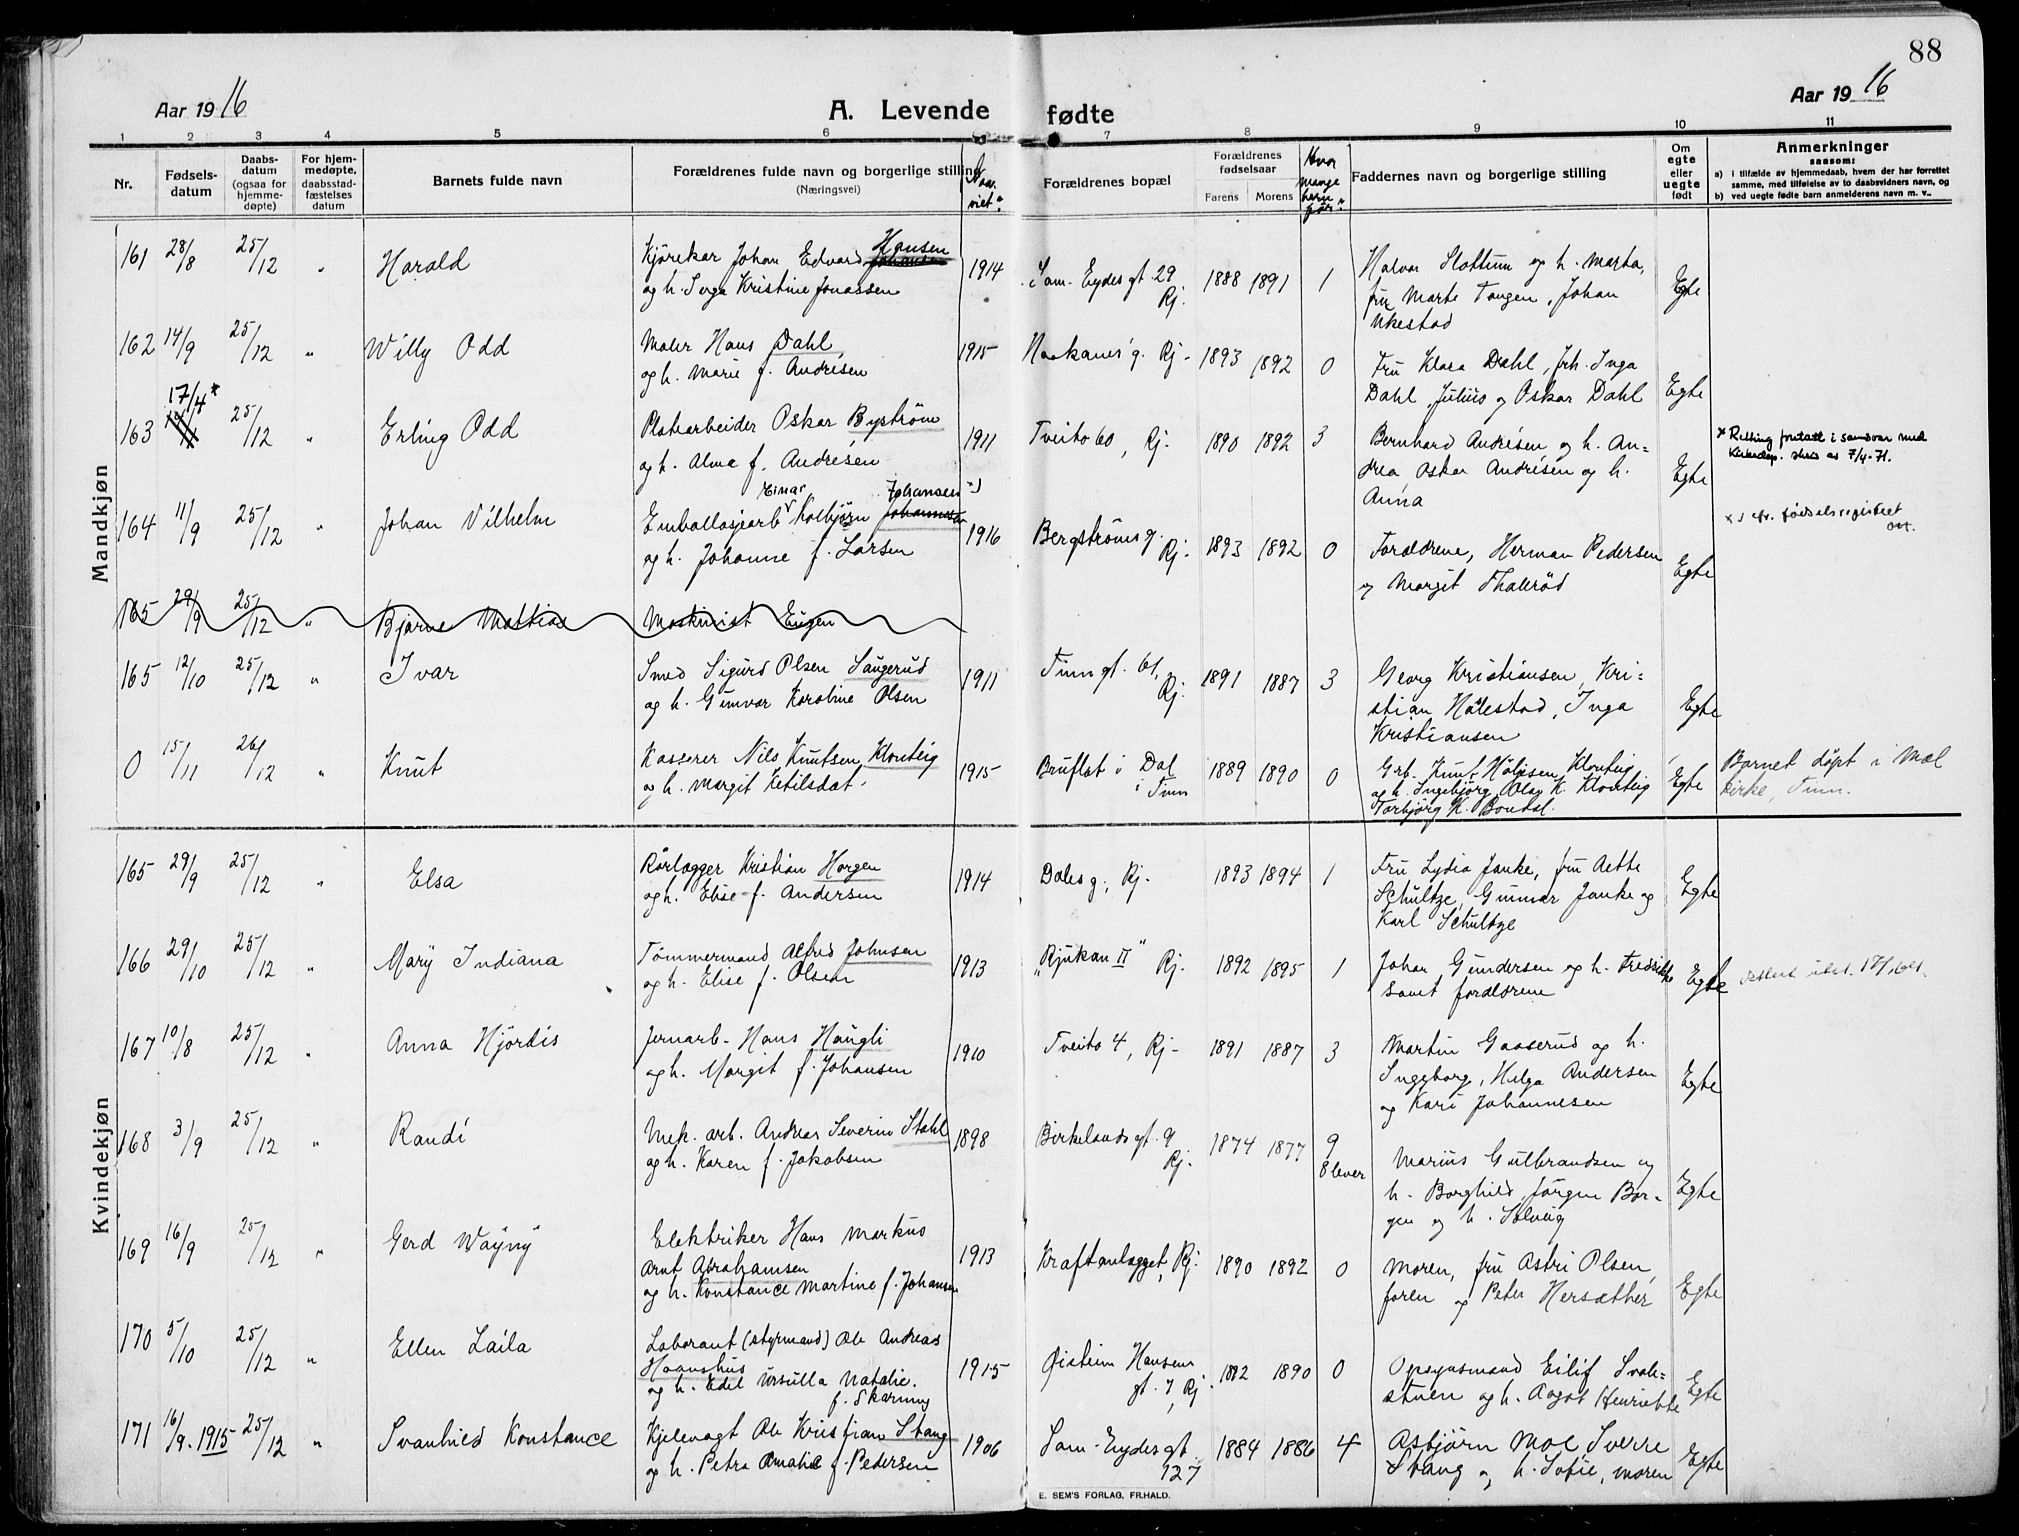 88
Aar 19 16
A. Levende fødte
Aar 19 16
1 2 3 4 5 6 7 8 9 10 11
Nr.
Fødsels-
datum
Daabs-
datum
(ogsaa for
hjemme-
døpte)
For hjem-
medøpte,
daabsstad-
fæstelses
datum
Barnets fulde navn
Forældrenes fulde navn og borgerlige stilling
(Næringsvei)
Naar
viet?
Forældrenes bopæl
Forældrenes
fødselsaar
Farens Morens
Hvor
mange
barn
før?
Faddernes navn og borgerlige stilling
Om
egte
eller
uegte
født
Anmerkninger
saasom:
a) i tilfælde av hjemmedaab, hvem der har forrettet
samme, med tilføielse av to daabsvidners navn, og
b) ved uegte fødte barn anmelderens navn m. v..
Mandkjøn
161 28/8 25/12 " Harald
Kjørekar Johan Edvard Johansen Hansen
og h. Inga Kristine Jonassen
1914 Sam. Eydes gt. 29
Rj. 1888 1891 1
Halvor Slottum og h. Marta,
fru Marte Tangen, Johan
Ukestad
Egte
162 14/9 25/12 " Willy Odd
Maler Hans Dahl
og h. Marie f. Andrésen
1915 Naakanes' g. Rj. 1893 1892 0
Fru Klara Dahl, frk. Inga
Dahl, Julius og Oskar Dahl
Egte
17/4 *
163 14/11 25/12 " Erling Odd
Platearbeider Oskar Byström
og h. Alma f. Andrésen
1911 Tveito 60, Rj. 1890 1892 3
Bernhard Andrésen og h. An-
drea Oskar Andrésen og h.
Anna
Egte
* Retting foretatt i samsvar med
Kirkedep. skriv av 7/4-71.
164 11/9 25/12 " Johan Vilhelm
Einar Johansen x)
Emballasjearb Kolbjørn Johannesen
og h. Johanne f. Larsen
1916 Bergstrøms g. Rj. 1893 1892 0
Forældrene, Herman Pedersen
og Margit Thallerød
Egte
x) cfr. fødselsregistret
165 29/9 25/12 " Bjarne Mattias
Maskinist Eugen
165 12/10 25/12 " Ivar
Smed Sigurd Olsen Saugerud
og h. Gunvor Karoline Olsen
1911 Tinngt. 61, Rj. 1891 1887 3
Georg Kristiansen, Kri-
stian Hålestad, Inga
Kristiansen
Egte
0 15/11 26/12 " Knut
Kasserer Nils Knutsen Klovteig
og h. Margit Ketilsdat.
1915 Bruflat i Dal
i Tinn 1889 1890 0
Grb. Knut Nilssen Klovteig
og h. Ingebjørg, Olav K. Klovteig
Torbjørg K. Bondal.
Egte
Barnet döpt i Mæl
kirke, Tinn.
Kvindekjøn
165 29/9 25/12 " Elsa
Rørlægger Kristian Horgen
og h. Elise f. Andersen
1914 Dales g., Rj. 1893 1894 1
Fru Lydia Janke, fru Aette
Schultze, Gunnar Janke og
Karl Schultze
Egte
166 29/10 25/12 " Mary Indiana
Tømmermand Alfred Johnsen
og h. Elise f. Olsen
1913 "Rjukan II" Rj. 1892 1895 1
Johan Gundersen og h. Fredrikke
samt forældrene
Egte
167 10/8 25/12 " Anna Hjördis
Jernarb. Hans Haugli
og h. Margit f. Johansen
1910 Tveito 4, Rj. 1891 1887 3
Martin Gaaserud og h.
Ingeborg, Helga Andersen
og Kari Johannesen
Egte
168 3/9 25/12 " Randi
Mek. arb. Andreas Severin Stahl
og h. Karen f. Jakobsen
1898 Birkelands gt. 9
Rj. 1874 1877 9
8 lever
Marius Gulbrandsen og
h. Borghild, Jørgen Bor-
gen og h. Solveig
Egte
169 16/9 25/12 " Gerd Wäyny
Elektriker Hans Markus
Arnt Abrahamsen
og h. Konstance Martine f. Johansen
1913 Kraftanlægget, Rj. 1890 1892 0
Moren, fru Astri Olsen,
faren og Peter Hersæther
Egte
170 5/10 25/12 " Ellen Laila
Laborant (styrmand) Ole Andreas
Haanshus
og h. Edel Ursulla Natalie.
f. Skarning
1915 Øistein Hansens
gt. 7, Rj. 1882 1890 0
Opsynsmand Eilif Svale-
stuen og h. Aagot Henriette
Egte
171 16/9. 1915 25/12 " Svanhild Konstance
Kjelevagt Ole Kristian Stang
og h. Petra Amalie f. Pedersen
1906 Sam. Eydes gt.
127 1884 1886 4
Asbjørn Moe Sverre
Stang og h. Sofie, moren
Egte
E. SEM'S FORLAG, FR.HALD.